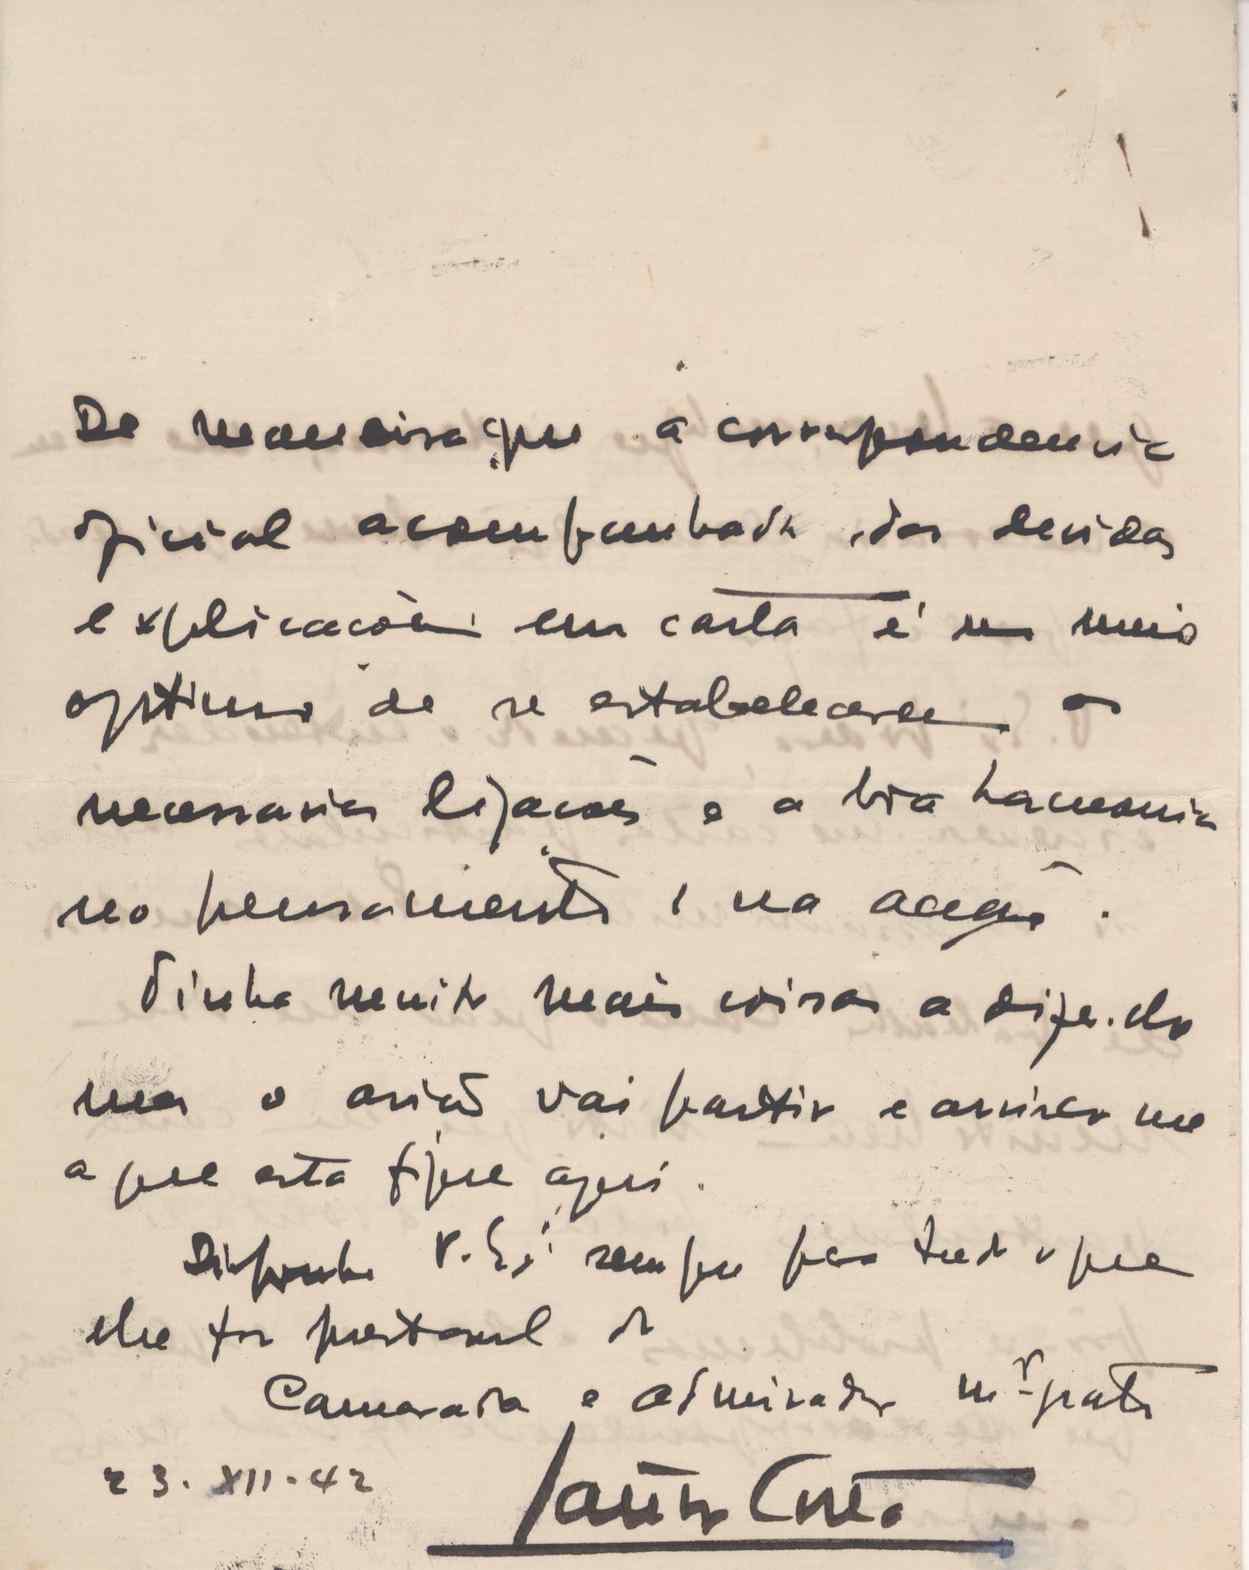 De maneira que a correspondencia
oficial acompanhada das devidas
explicacões em carta é um meio
optimo de se estabelecerem as
necessarias ligacões e a boa harmonia
no pensamento e na acção.
Tinha muito mais coisas a dizer-lhe
mas o avião vai partir e arrisco me
a que esta fique aqui.
Disponha V. Exª sempre para tudo o que
lhe for prestavel o
Camarada e admirador mtº grato
23.XII.42
Santos Costa